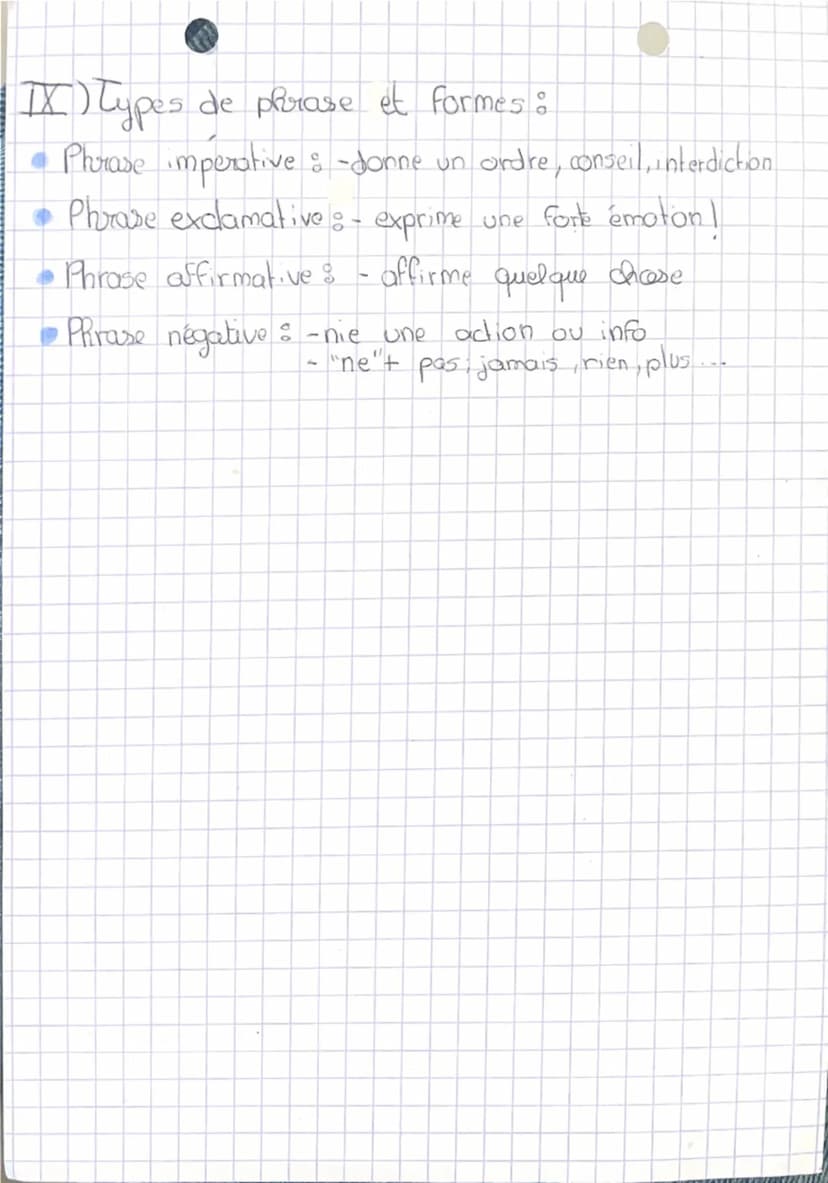 IX) Types de phrase et formes :
Phrase impérative : -donne un ordre, conseil, interdiction
Phrase exclamative : - exprime une forte émotion!
Phrase affirmative : - affirme quelque chose
Phrase négative : -nie une action ou info
- "ne"+ pas; jamais, rien, plus ...